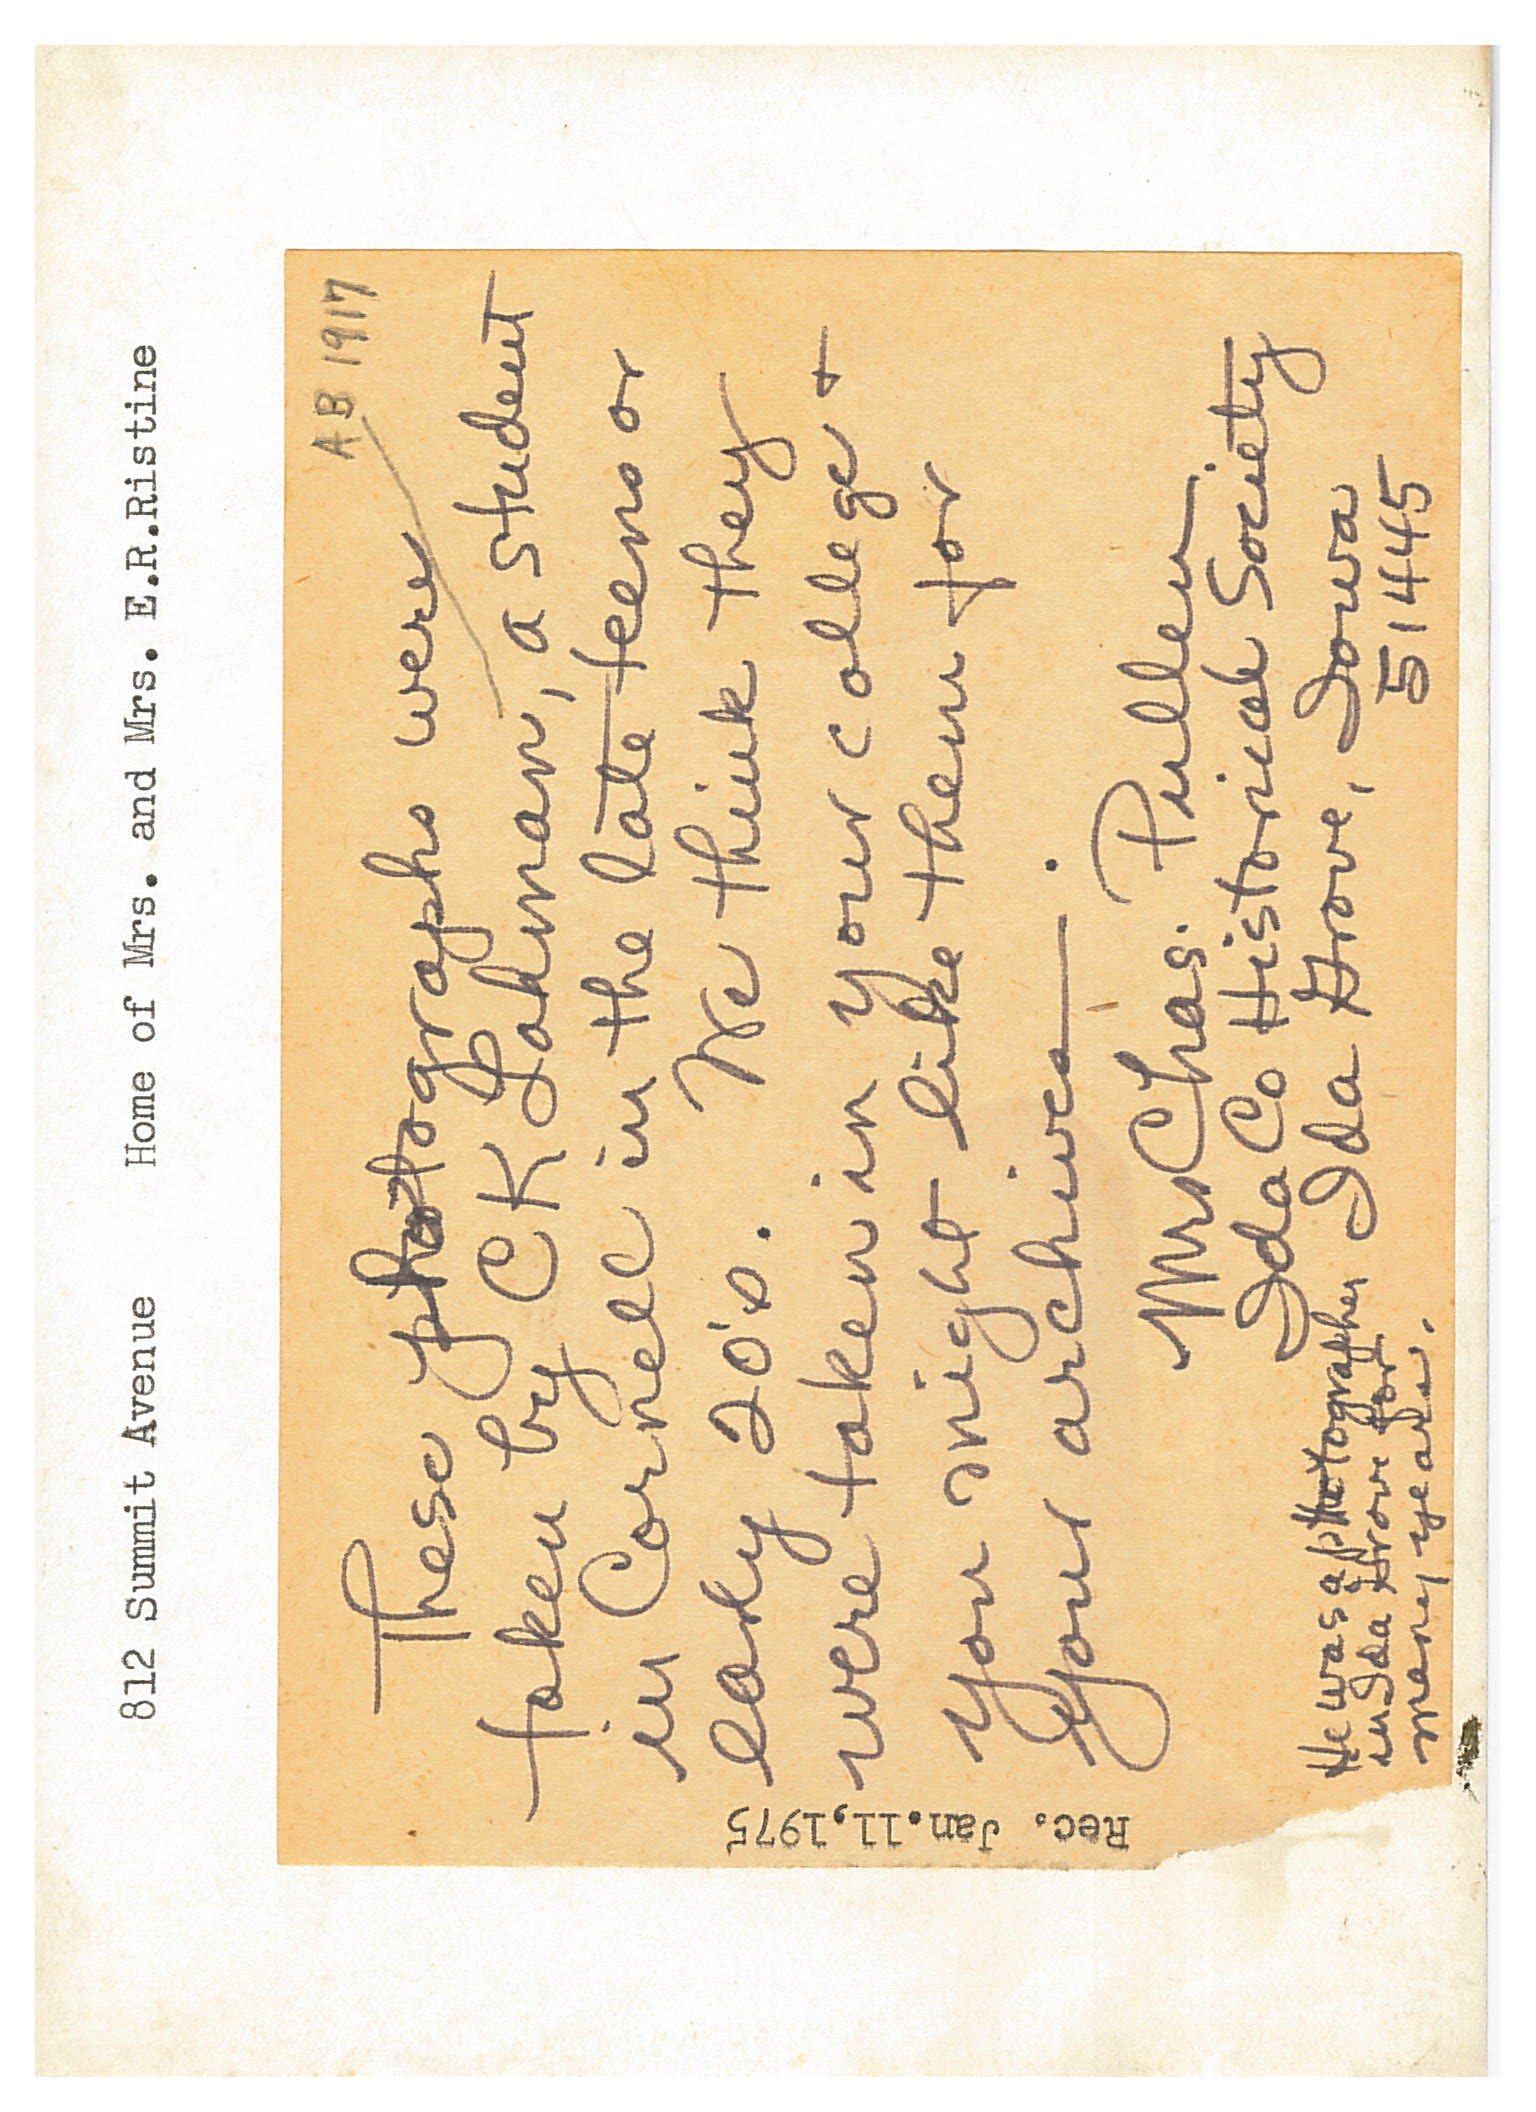 812 Summit Avenue Home of Mrs. and Mrs. E.R.Ristine
AB 1917
These photographs were
taken by CK Lahman, a student
in Cornell in the late teens or
early 20's. We think they
were taken in your college +
you might like them for
your archives.
Mrs Chas. Pullen
Ida Co Historical Society
Ida Grove, Iowa
51445
He was a photographer
in Ida Grove for
many years.
Rec. Jan.11,1975